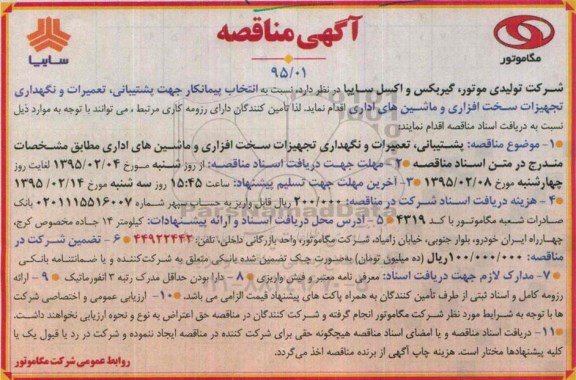 آگهی مناقصه
۹۵/۰۱
سایپا
مگاموتور
شرکت تولیدی موتور، گیربکس و اکسل سایپا در نظر دارد، نسبت به انتخاب پیمانکار جهت پشتیبانی، تعمیرات و نگهداری
تجهیزات سخت افزاری و ماشین های اداری اقدام نماید. لذا تأمین کنندگان دارای رزومه کاری مرتبط ، می توانند با توجه به موارد ذیل
نسبت به دریافت اسناد مناقصه اقدام نمایند:
۱- موضوع مناقصه: پشتیبانی، تعمیرات و نگهداری تجهیزات سخت افزاری و ماشین های اداری مطابق مشخصات
مندرج در متن اسناد مناقصه ۲- مهلت جهت دریافت اسناد مناقصه: از روز شنبه مورخ ۱۳۹۵/۰۲/۰۴ لغایت روز
چهارشنبه مورخ ۱۳۹۵/۰۲/۰۸ ۳- آخرین مهلت جهت تسلیم پیشنهاد: ساعت ۱۵:۴۵ روز سه شنبه مورخ ۱۳۹۵/۰۲/۱۴
۴- هزینه دریافت اسناد شرکت در مناقصه: ۲۰۰/۰۰۰ ریال قابل واریز به حساب سپهر شماره ۰۲۰۱۱۱۵۵۱۶۰۰۷ بانک
صادرات شعبه مگاموتور با کد ۴۳۱۹ ۵- آدرس محل دریافت اسناد و ارائه پیشنهادات: کیلومتر ۱۴ جاده مخصوص کرج،
چهارراه ایران خودرو، بلوار جنوبی، خیابان زامیاد، شرکت مگاموتور، واحد بازرگانی داخلی، تلفن: ۴۴۹۲۲۴۴۲ ۶- تضمین شرکت در
مناقصه: ۱۰۰/۰۰۰/۰۰۰ ریال (ده میلیون تومان) به‌صورت چک تضمین شده بانکی متعلق به شرکت‌کننده و یا ضمانتنامه بانکی
۷- مدارک لازم جهت دریافت اسناد: معرفی نامه معتبر و فیش واریزی ۸- دارا بودن حداقل مدرک رتبه ۳ انفورماتیک ۹- ارائه
رزومه کامل و اسناد ثبتی از طرف تأمین کنندگان به همراه پاکت های پیشنهاد قیمت الزامی می باشد. ۱۰- ارزیابی عمومی و اختصاصی شرکت
ها با توجه به شرایط مورد نظر شرکت مگاموتور انجام گرفته و شرکت کنندگان در مناقصه حق اعتراض به نوع و نحوه ارزیابی نخواهند داشت.
۱۱- دریافت اسناد مناقصه و یا امضای اسناد مناقصه هیچگونه حقی برای شرکت کننده در مناقصه ایجاد ننموده و شرکت در رد یا قبول یک یا
کلیه پیشنهادها مختار است. هزینه چاپ آگهی از برنده مناقصه اخذ می‌گردد.
روابط عمومی شرکت مگاموتور